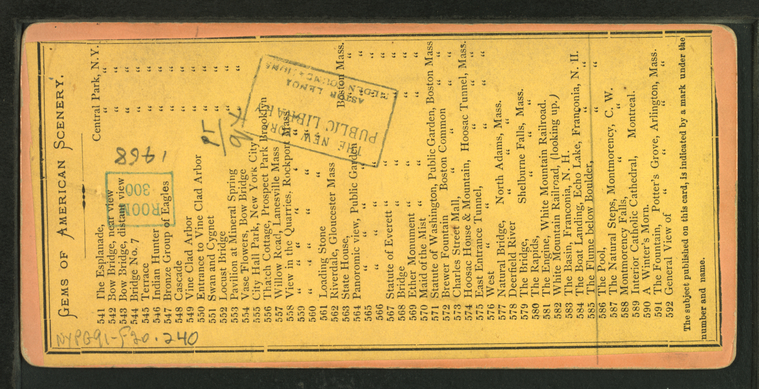 GEMS OF AMERICAN SCENERY.
541 The Esplanade, Central Park, N. Y.
542 Bow Bridge, near view " "
543 Bow Bridge, distant view " "
544 Bridge No. 7 " "
545 Terrace " "
546 Indian Hunter " "
547 Bronze Group of Eagles " "
548 Cascade " "
549 Vine Clad Arbor " "
550 Entrance to Vine Clad Arbor " "
551 Swan and Cygnet " "
552 Locust Bridge " "
553 Pavilion at Mineral Spring " "
554 Vase Flowers, Bow Bridge " "
555 City Hall Park, New York City
556 Thatch Cottage, Prospect Park Brooklyn
557 Willow Road, Lanesville Mass
558 View in the Quarries, Rockport Mass
559 " " " "
560 " " " "
561 Loading Stone
562 Riverdale, Gloucester Mass
563 State House, Boston Mass.
564 Panoromic view, Public Garden "
565 " " " "
566 " " " "
567 Statute of Everett " "
568 Bridge " "
569 Ether Monument " "
570 Maid of the Mist " "
571 Statue of Washington, Public Garden, Boston Mass
572 Brewer Fountain Boston Common
573 Charles Street Mall, " "
574 Hoosac House & Mountain, Hoosac Tunnel, Mass.
575 East Entrance Tunnel, " "
576 West " " " "
577 Natural Bridge, North Adams, Mass.
578 Deerfield River " "
579 The Bridge, Shelburne Falls, Mass.
580 The Rapids, " "
581 The Engine, White Mountain Railroad.
582 White Mountain Railroad, (looking up.)
583 The Basin, Franconia, N. H.
584 The Boat Landing, Echo Lake, Franconia, N. H.
585 The Flume below Boulder, " "
586 The Pool, " "
587 The Natural Steps, Montmorency, C. W.
588 Montmorency Falls, " "
589 Interior Catholic Cathedral, Montreal.
590 A Winter's Morn.
591 The Fountain, Potter's Grove, Arlington, Mass.
592 General View of " " "
The subject published on this card, is indicated by a mark under the
number and name.
1468
ROOM
300
THE NEW YORK
PUBLIC LIBRARY
ASTOR LENOX
TILDEN FOUNDATIONS
NYPG91-F20.240